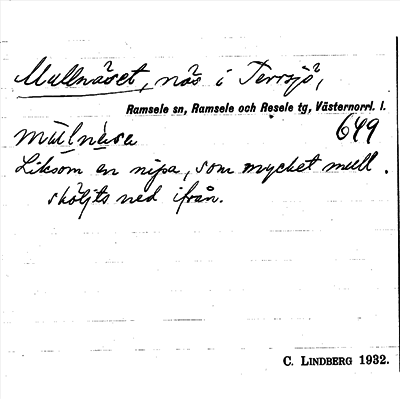 Mullnäset, näs i Terrsjö,
Ramsele sn, Ramsele och Resele tg, Västernorrl. l.
649
mùlnä̀sa
Liksom en nipa, som mycket mull
sköljts ned ifrån.
C. LINDBERG 1932.